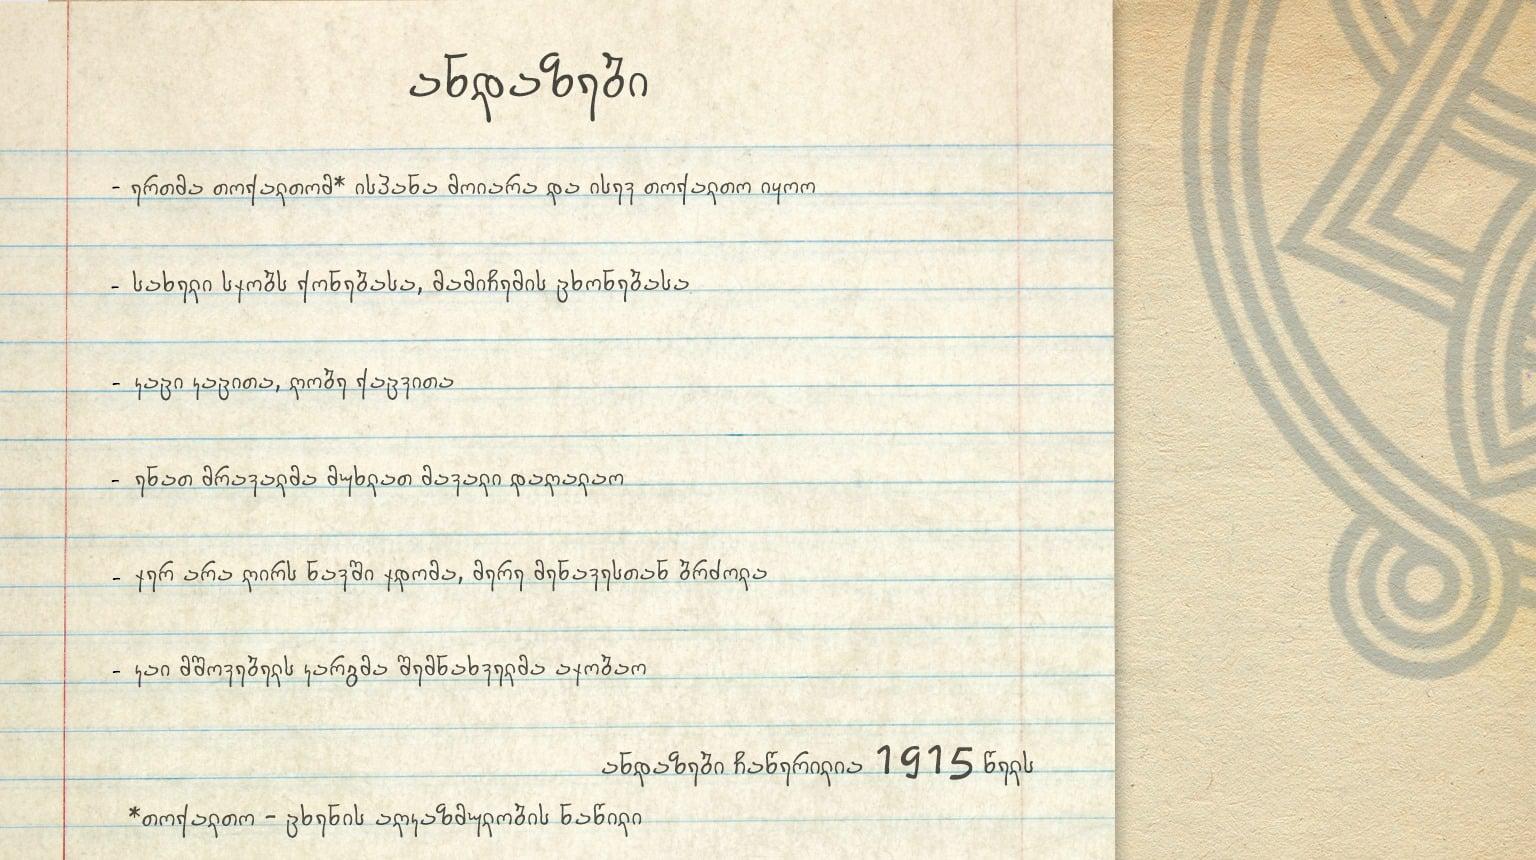 ანდაზები
- ერთმა თოქალთომ* ისპანა მოიარა და ისევ თოქალთო იყოო
- სახელი სჯობს ქონებასა, მამიჩემის ცხონებასა
- კაცი კაცითა, ღობე ქაცვითა
- ენათ მრავალმა მუხლათ მავალი დაღალაო
- ჯერ არა ღირს ნავში ჯდომა, მერე მენავესთან ბრძოლა
- კაი მშოვებელს კარგმა შემნახველმა აჯობაო
ანდაზები ჩაწერილია 1915 წელს
*თოქალთო - ცხენის აღკაზმულობის ნაწილი